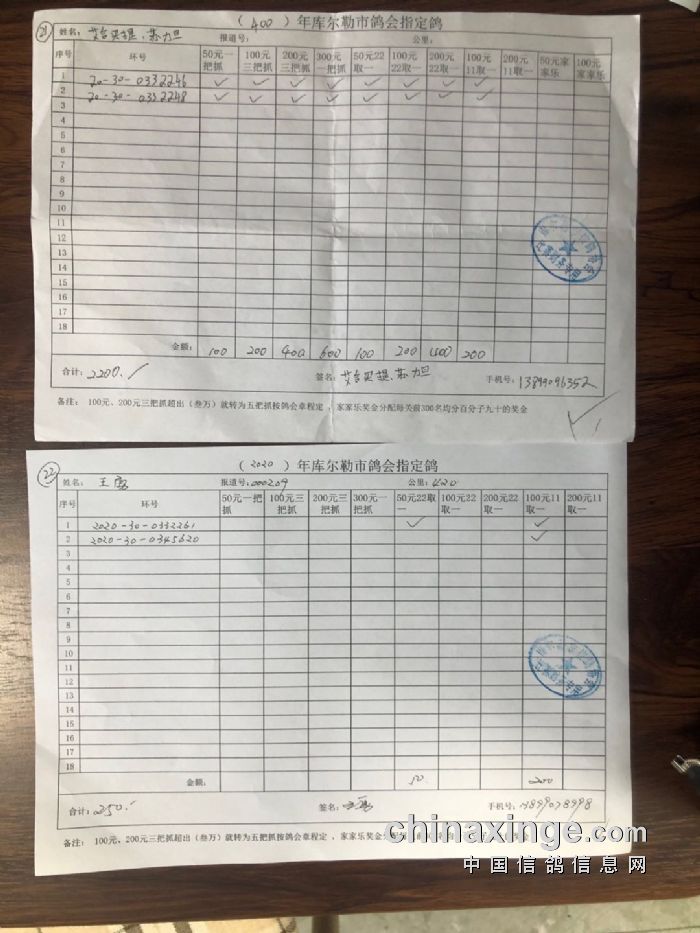 21
（ 400 ）年库尔勒市鸽会指定鸽
姓名： 报道号： 公里：
序号 环号 50元一把抓 100元三把抓 200元三把抓 300元一把抓 50元22取一 100元22取一 200元22取一 100元11取一 200元11取一 50元家家乐 100元家家乐
1 20-30-0332246 ✓ ✓ ✓ ✓ ✓ ✓ ✓ ✓
2 20-30-0332248 ✓ ✓ ✓ ✓ ✓ ✓ ✓ ✓
3
4
5
6
7
8
9
10
11
12
13
14
15
16
17
18
金额： 100 200 400 600 100 200 400 200
合计：2200. 签名： 手机号：13899096352
备注： 100元、200元三把抓超出（叁万）就转为五把抓按鸽会章程定，家家乐奖金分配每关前300名均分百分子九十的奖金
22
（ 2020 ）年库尔勒市鸽会指定鸽
姓名： 王 报道号：000209 公里：420
序号 环号 50元一把抓 100元三把抓 200元三把抓 300元一把抓 50元22取一 100元22取一 200元22取一 100元11取一 200元11取一
1 2020-30-0332261 ✓ ✓
2 2020-30-0345620 ✓
3
4
5
6
7
8
9
10
11
12
13
14
15
16
17
18
金额： 50 200
合计：250. 签名： 手机号：13899078998
备注： 100元、200元三把抓超出（叁万）就转为五把抓按鸽会章程定，家家乐奖金分配每关前300名均分百分子九十的奖金
chinaxinge.com
中国信鸽信息网